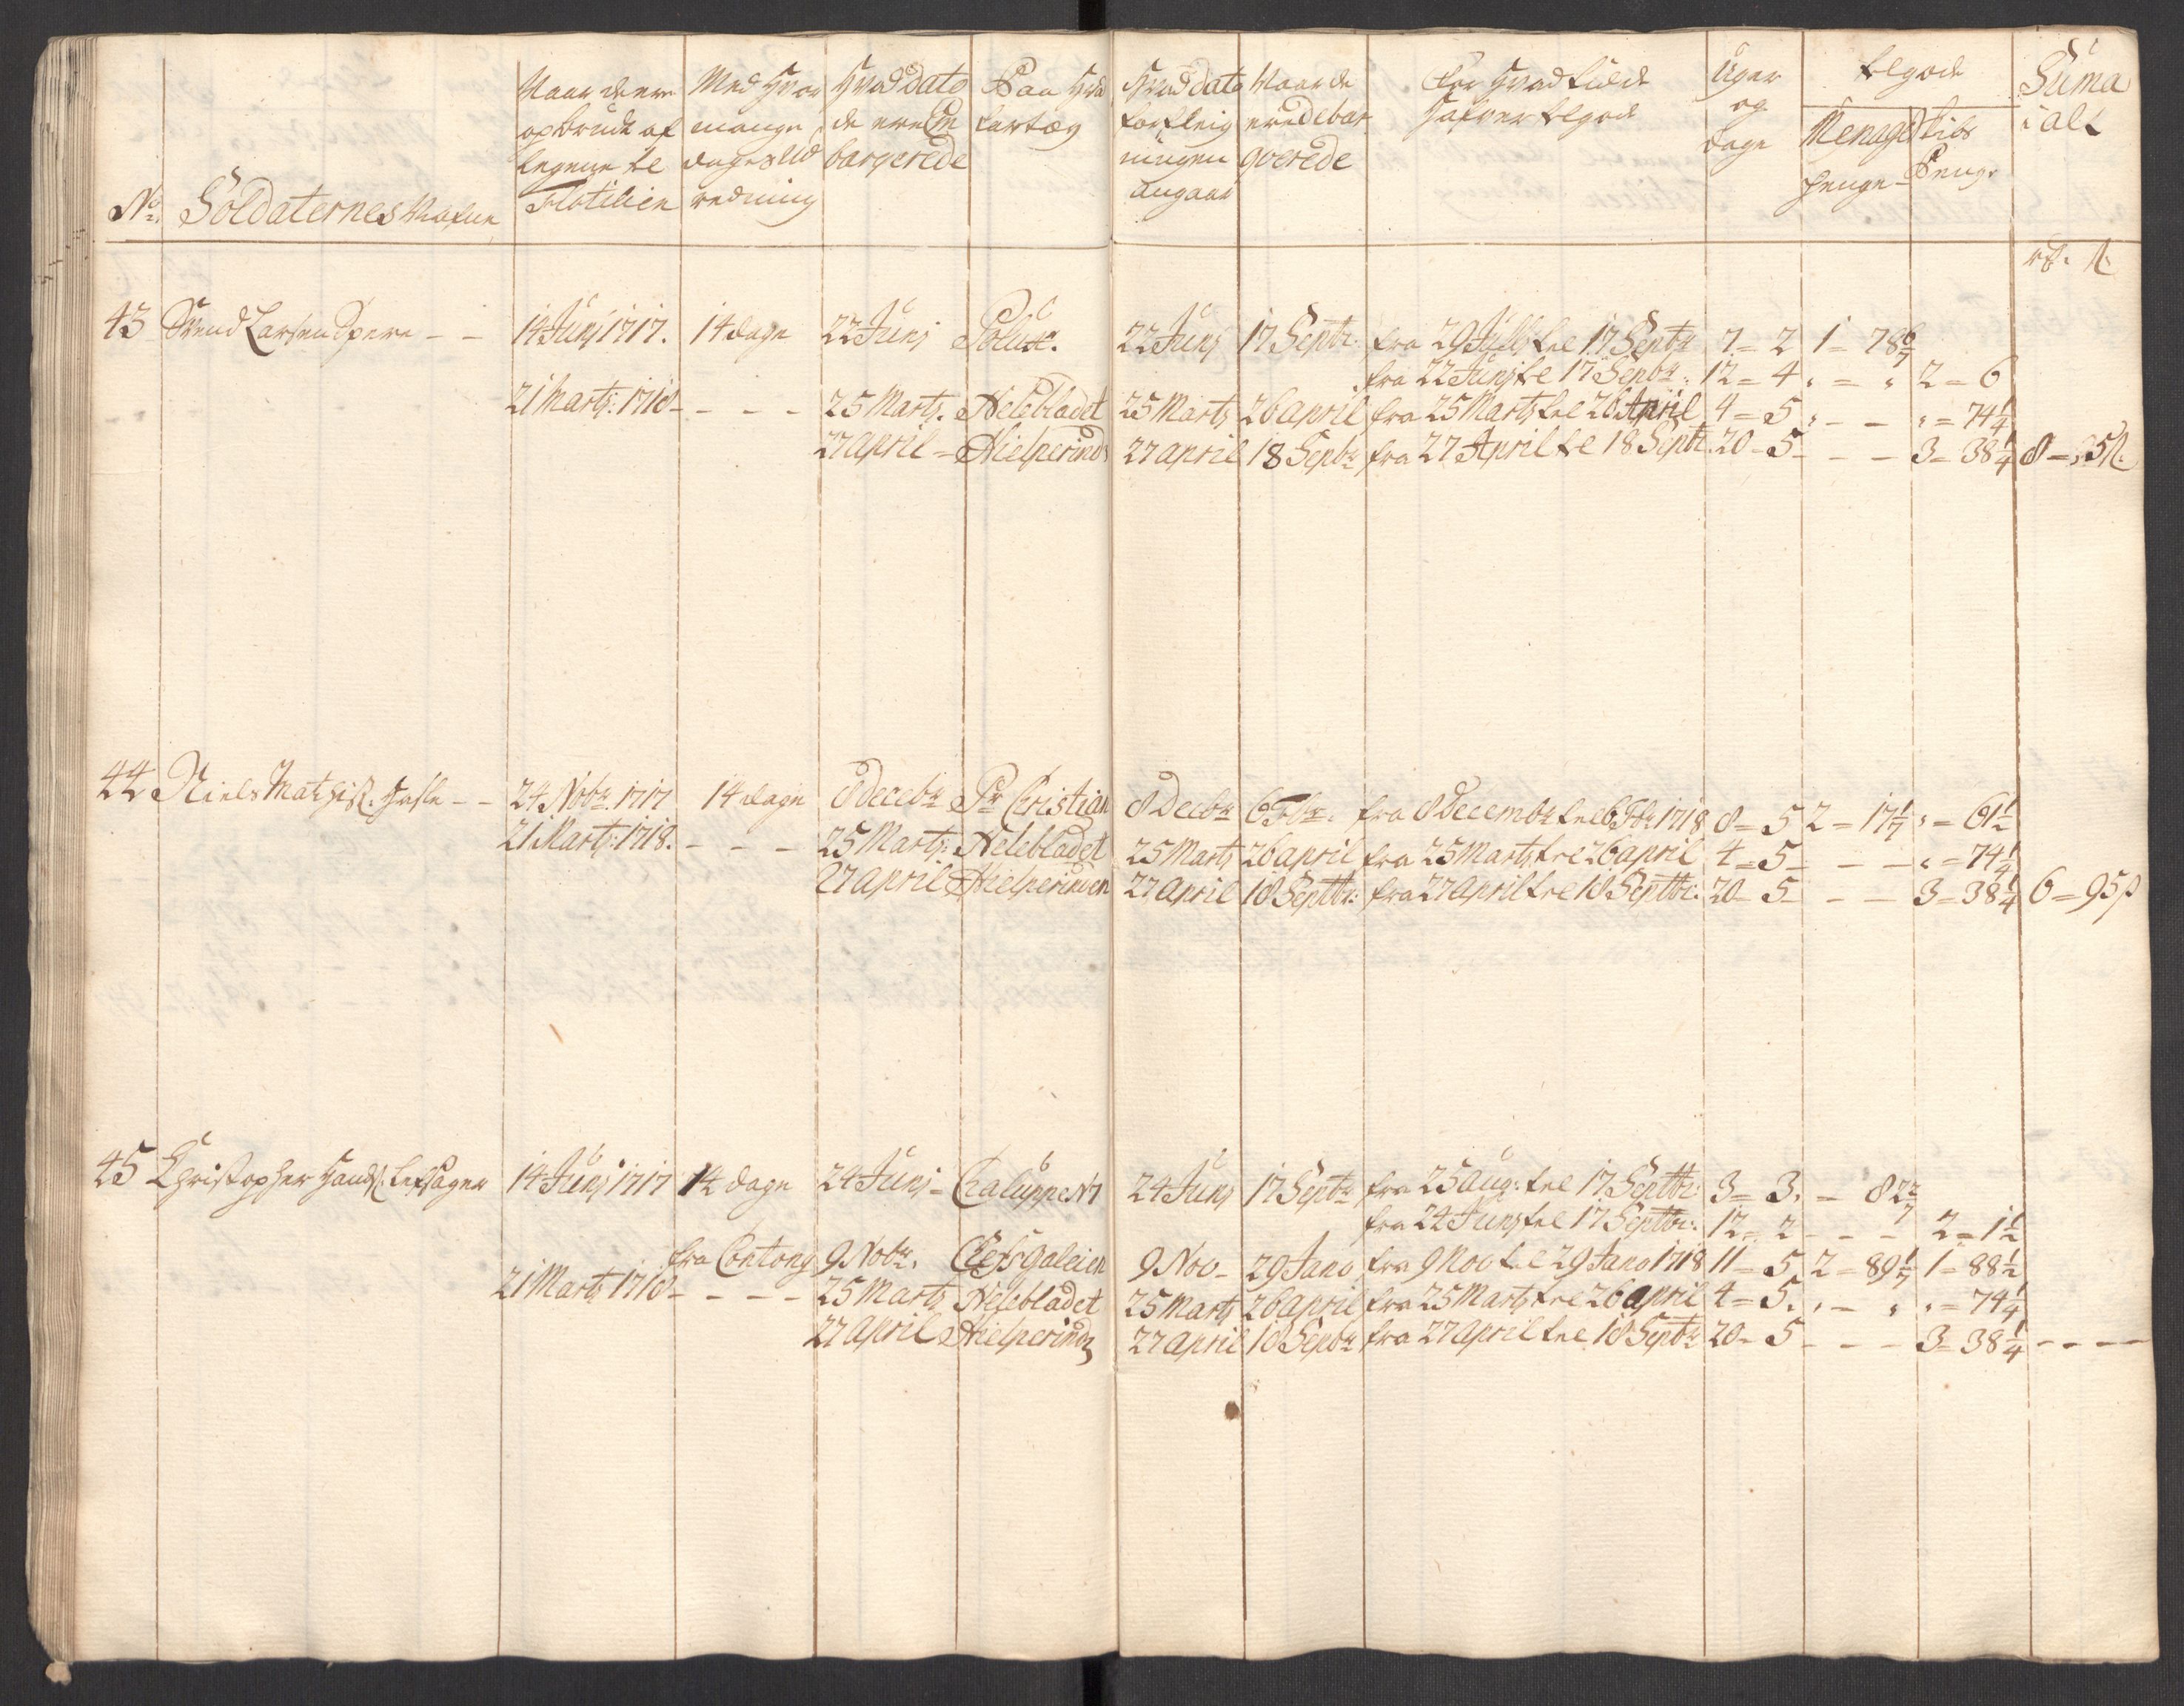 No. Soldaternes Nafne
Naar de ere opbrudt af Legene til Flotilien
Med Hvor mange dages Udredning
Hvad dato de ere Embarqerede
Paa Hvad Fartøy
Hvad dato forfleigningen angaar
Naar de ere debarqverede
For Hvad tiid de Hafver tilgode
Uger og Dage
tilgode
Menage Penge
Kibs Penge
Suma i alt
rd. s.
43 Svend Larsen - - 14 Junj 1717. 14 dage 22 Junj Polux. 22 Junj 17 Septr. fra 29 Julj til 17 Septr 7 = 2 1 = 78 6/7
fra 22 Junj til 17 Septr: 12 = 4 " = " 2 = 6
21 Marts: 1718 - - - - 25 Marts. Nelebladet 25 Marts 26 april fra 25 Marts til 26 April 4 = 5 " - - " = 74 1/4
27 april - Hielperinds 27 april 18 Sepbr fra 27 April til 18 Septr. 20 - 5 - - - 3 = 38 1/4 8 = 5 s.
44 Niels Mathiss. - - 24 Nobr. 1717 14 dage 8 Decbr Pr Cristian 8 Decbr 6 Febr. fra 8 Decembr til 6 Febr 1718 8 = 5 2 = 17 1/7 " = 61 1/2
21 Marts: 1718. - - - 25 Marts: Nelebladet 25 Marts 26 april fra 25 Marts til 26 april 4 = 5 - - - " = 74 1/4
27 april Hielperinden 27 april 18 Septbr: fra 27 april til 18 Septbr: 20 - 5 - - - 3 = 38 1/4 6 = 95 s
45 Christopher Hands. 14 Junj 1717 14 dage 24 Junj - Chaluppe N1 24 Junj 17 Septr fra 25 aug: til 17 Septbr: 3 = 3 " - 82 2/7
fra 24 Junj til 17 Septbr: 12 = 2 - - - 2 = 1 1/2
fra Contong 9 Nobr. Chefs galeien 9 Nov - 29 Jano fra 9 Nov til 29 Jano 1718 11 = 5 2 = 89 1/7 1 = 88 1/2
21 Marts 1718 - - - - 25 Marts Nelebladet 25 Marts 26 april fra 25 Marts til 26 april 4 = 5 " - " " = 74 1/4
27 april Hielperindn 27 april 18 Sepbr fra 27 april til 18 Septr 20 - 5 - - - 3 = 38 1/4 - - - -